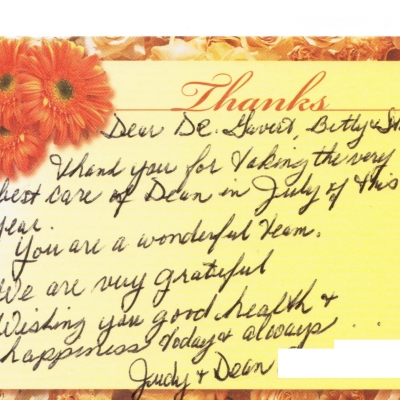 Thanks
Dear Dr. Govert, Betty &
Thank you for taking the very
best care of Dean in July of this
year.
You are a wonderful team.
We are very grateful
Wishing you good health &
happiness today & always...
Judy & Dean